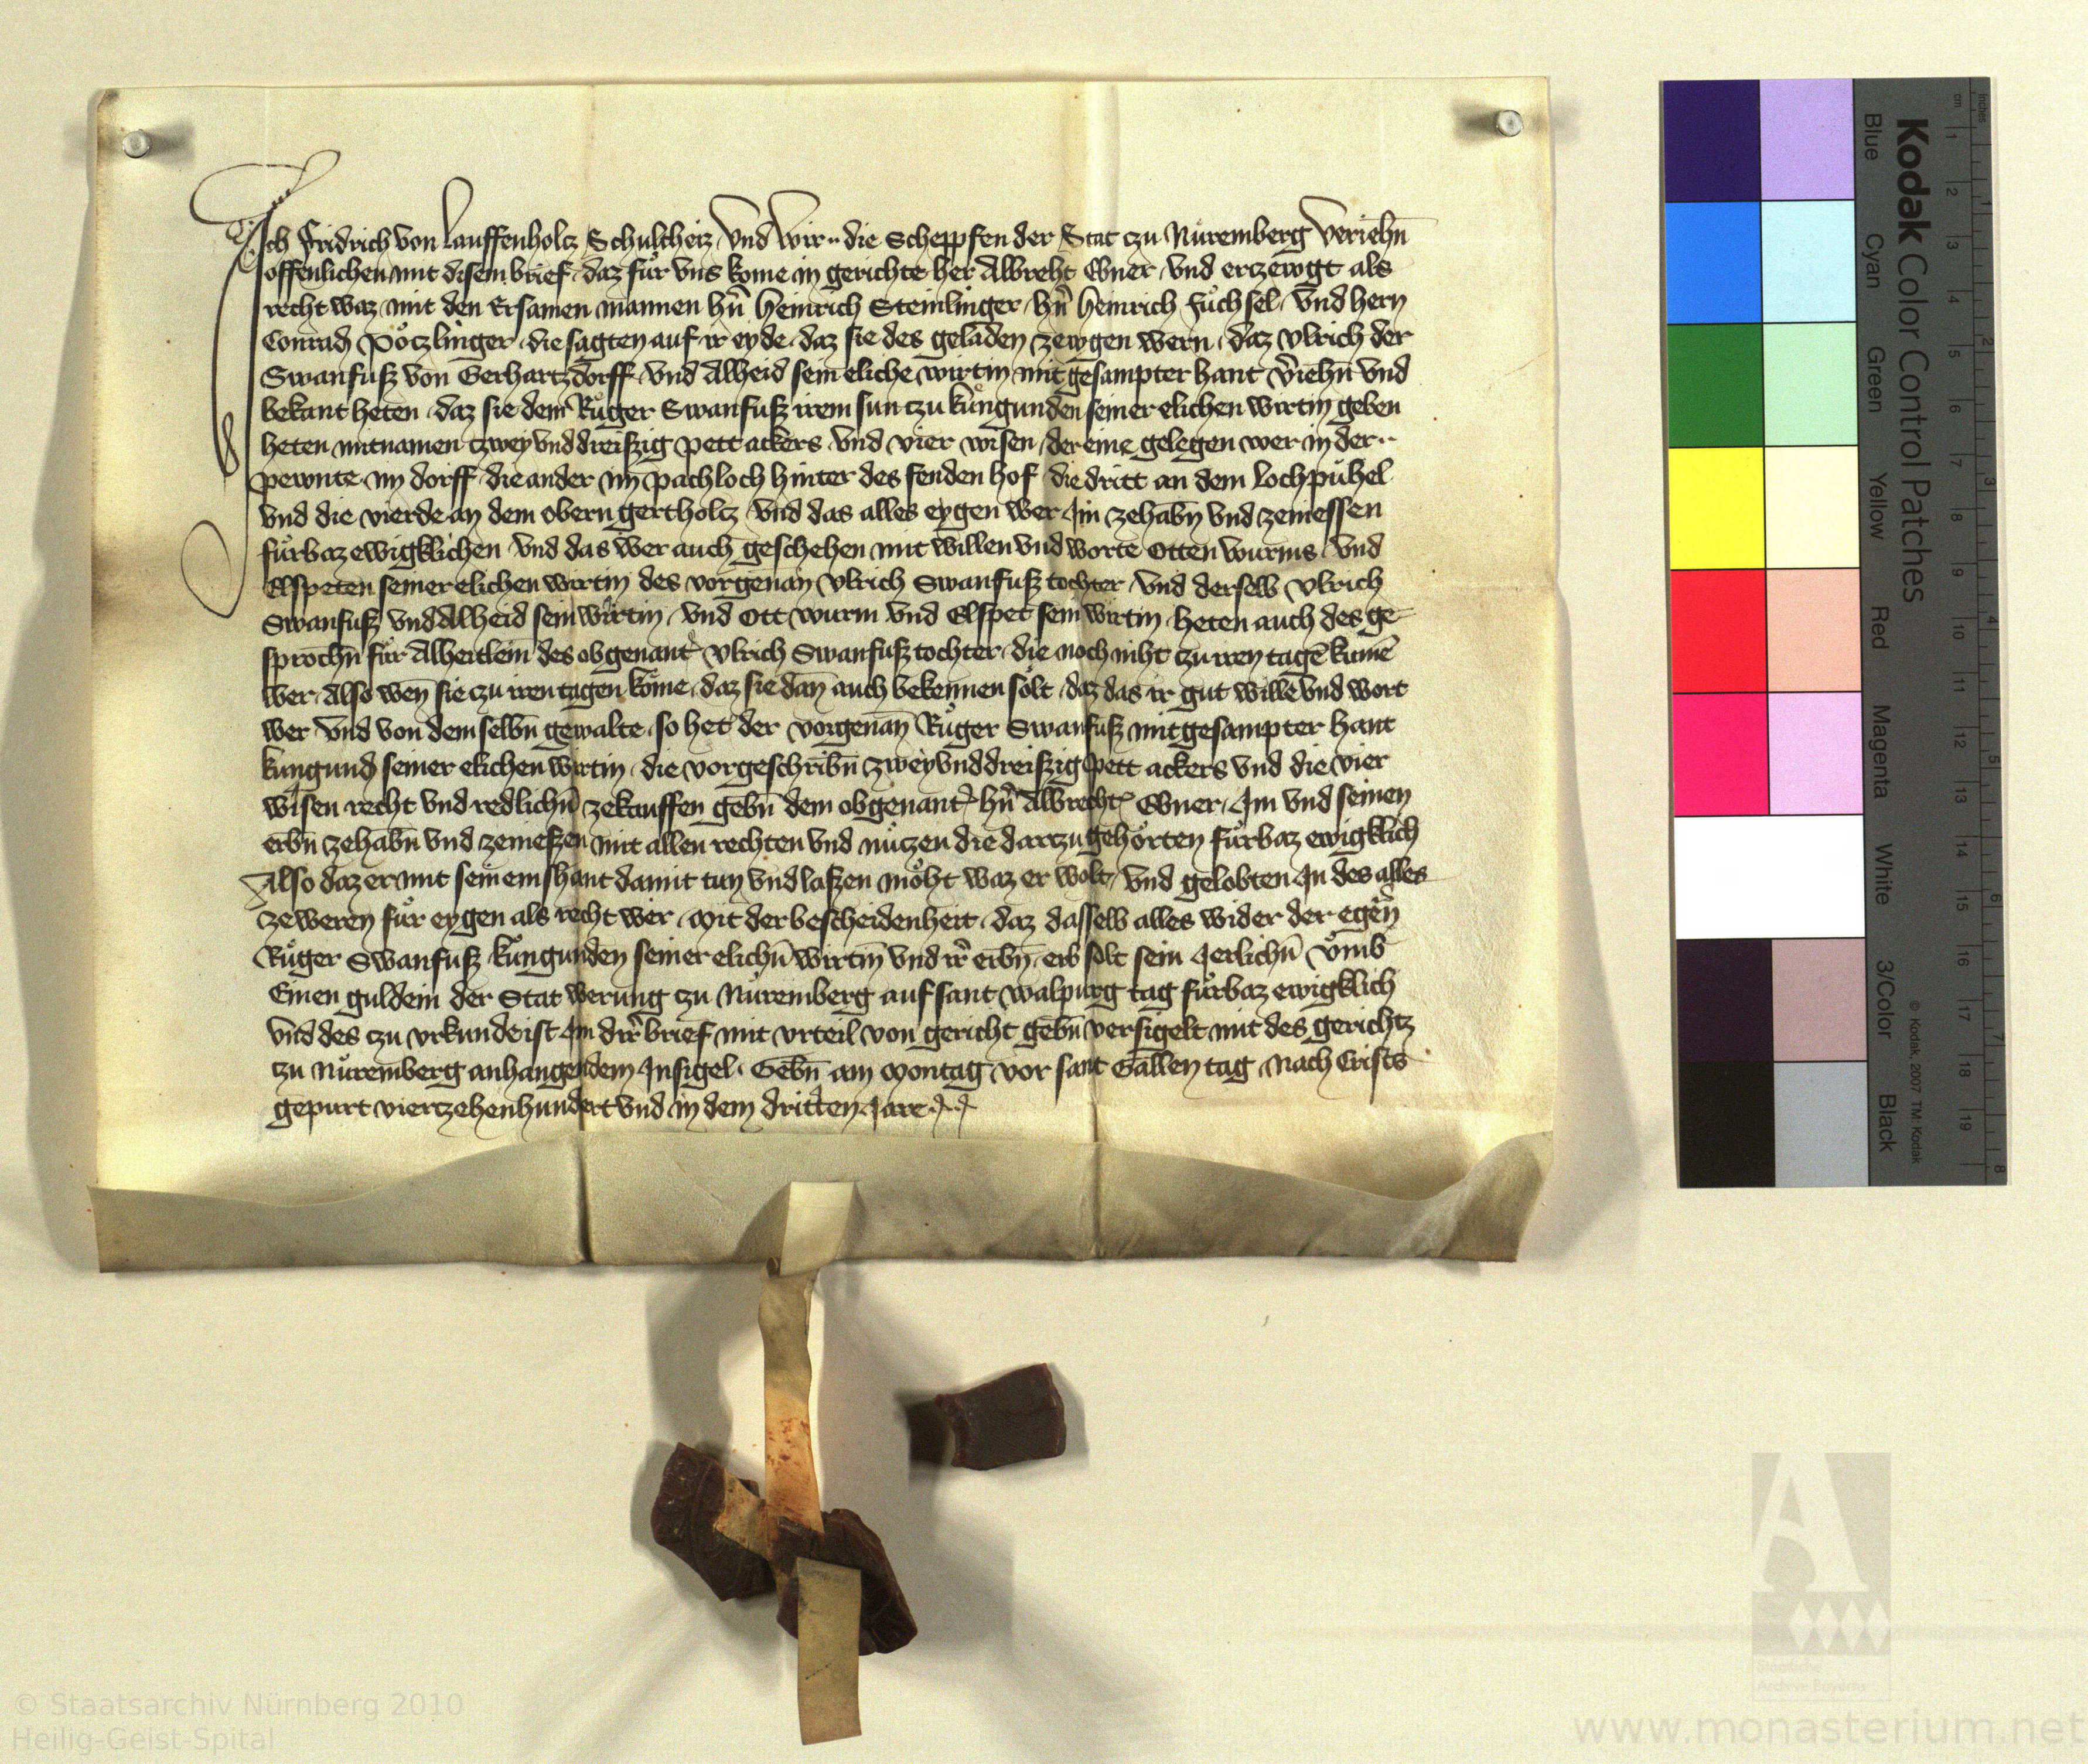 Ich Fridrich von Lauffenholcz Schultheiz vnd Wir die Scheppfen der Stat czu Nu̍remberg veriehn̄
offenlichen mit disem brief daz fu̍r vns kome in gerichte her Albreht Ebner vnd erczewgt als
recht waz mit den Ersamen mannen hn̄ heinrich Steinlinger hn̄ heinrich fu̍chsel vnd hern
Conrad Pöczlinger die sagten auf ir eyde daz sie des geladen zewgen wern daz Vlrich der
Swanfusz von Gerhartzdorff vnd Alheid sein eliche wirtin mit gesampter hant v̄iehn̄ vnd
bekant heten daz sie dem Ru̍ger Swanfusz irem sun czu Ku̍ngunden seiner elichen wirtin geben
heten mitnamen czwey vnd dreiszig pett ackers vnd vier wisen der eine gelegen wer in der
pewnte im dorff die ander im pachloch hinter des fenden hof die dritt an dem Lochpu̍hel
vnd die vierde an dem obern gertholcz vnd das alles eygen wer Im zehabn̄ vnd zeniessen
fu̍rbaz ewigklichen vnd das wer auch geschehen mit willen vnd worte Otten wurms vnd
Elspeten seiner elichen wirtin des vorgenan̄ Vlrich Swanfusz tochter vnd derselb Vlrich
Swanfusz vnd Alheid sein wirtin vnd Ott wurm vnd Elspet sein wirtin heten auch des ge
sprochn̄ fu̍r Alheitlein des obgenant̄ Vlrich Swanfusz tochter die noch niht czu iren tagē kumē
wer Also wen̄ sie czu iren tagen kome daz sie dan̄ auch bekennen solt daz das ir gut willē vnd wort
wer vnd von dem selbn̄ gewalte so het der vorgenan̄ Ru̍ger Swanfusz mit gesampter hant
kungund seiner elichen wirtin die vorgeschribn̄ zwey vnd dreiszig pett ackers vnd die vier
wisen recht vnd redlichn̄ zekauffen gebn̄ dem obgenant̄ hn̄ Albrecht Ebner Im vnd seinen
erbn̄ zehabn̄ vnd zenieszen mit allen rechten vnd nu̍czen die darczu gehörten fu̍rbaz ewigklich
Also daz er mit sein einshant damit tun vnd laszen möht waz er wolt vnd gelobten In des alles
ze weren fu̍r eygen als recht wer Mit der bescheidenheit daz dasselb alles wider der egen̄
Ru̍ger Swanfusz Ku̍ngunden seiner elichn̄ wirtin vnd ir̄ erbn̄ erb solt sein Jerlichn̄ vmb
Einen guldein der Stat werung czu Nu̍remberg auf sant walpurg tag fu̍rbaz ewigklich
vnd des czu vrkunde ist Im dir̄ brief mit vrteil von gericht gebn̄ versigelt mit des gerichtz
czu Nu̍remberg anhangendem Insigel Gebn̄ am Montag vor sant Gallen tag Nach Crists
gepurt vierczehenhundert vnd in dem dritten Jare
Kodak Color Control Patches
Blue Cyan Green Yellow Red Magenta White 3/Color Black
© Kodak, 2007 TM: Kodak
cm 1 2 3 4 5 6 7 8 9 10 11 12 13 14 15 16 17 18 19
Inches 1 2 3 4 5 6 7 8
© Staatsarchiv Nürnberg 2010
Heilig-Geist-Spital
www.monasterium.net